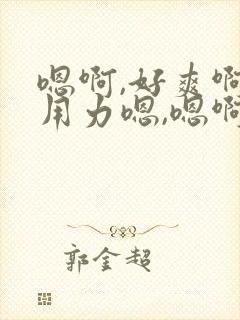 嗯啊,好爽啊
用力嗯,嗯啊
郭金超